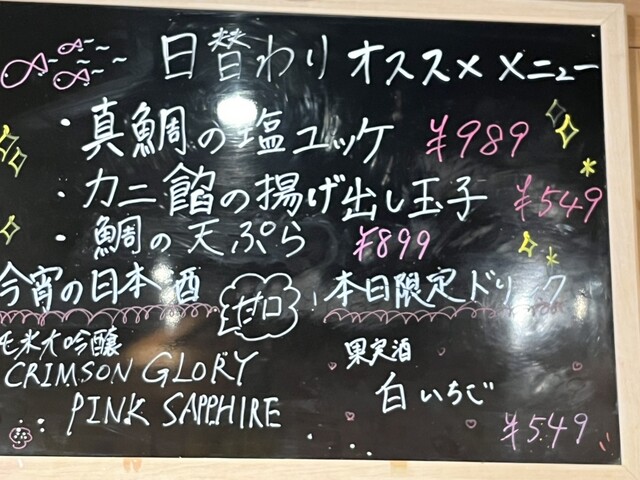 日替わりオススメメニュー
・真鯛の塩ユッケ ¥989
・カニ餡の揚げ出し玉子 ¥549
・鯛の天ぷら ¥899
今宵の日本酒 甘口 本日限定ドリンク
純米大吟醸 果実酒
CRIMSON GLORY 白いちご
PINK SAPPHIRE ¥549